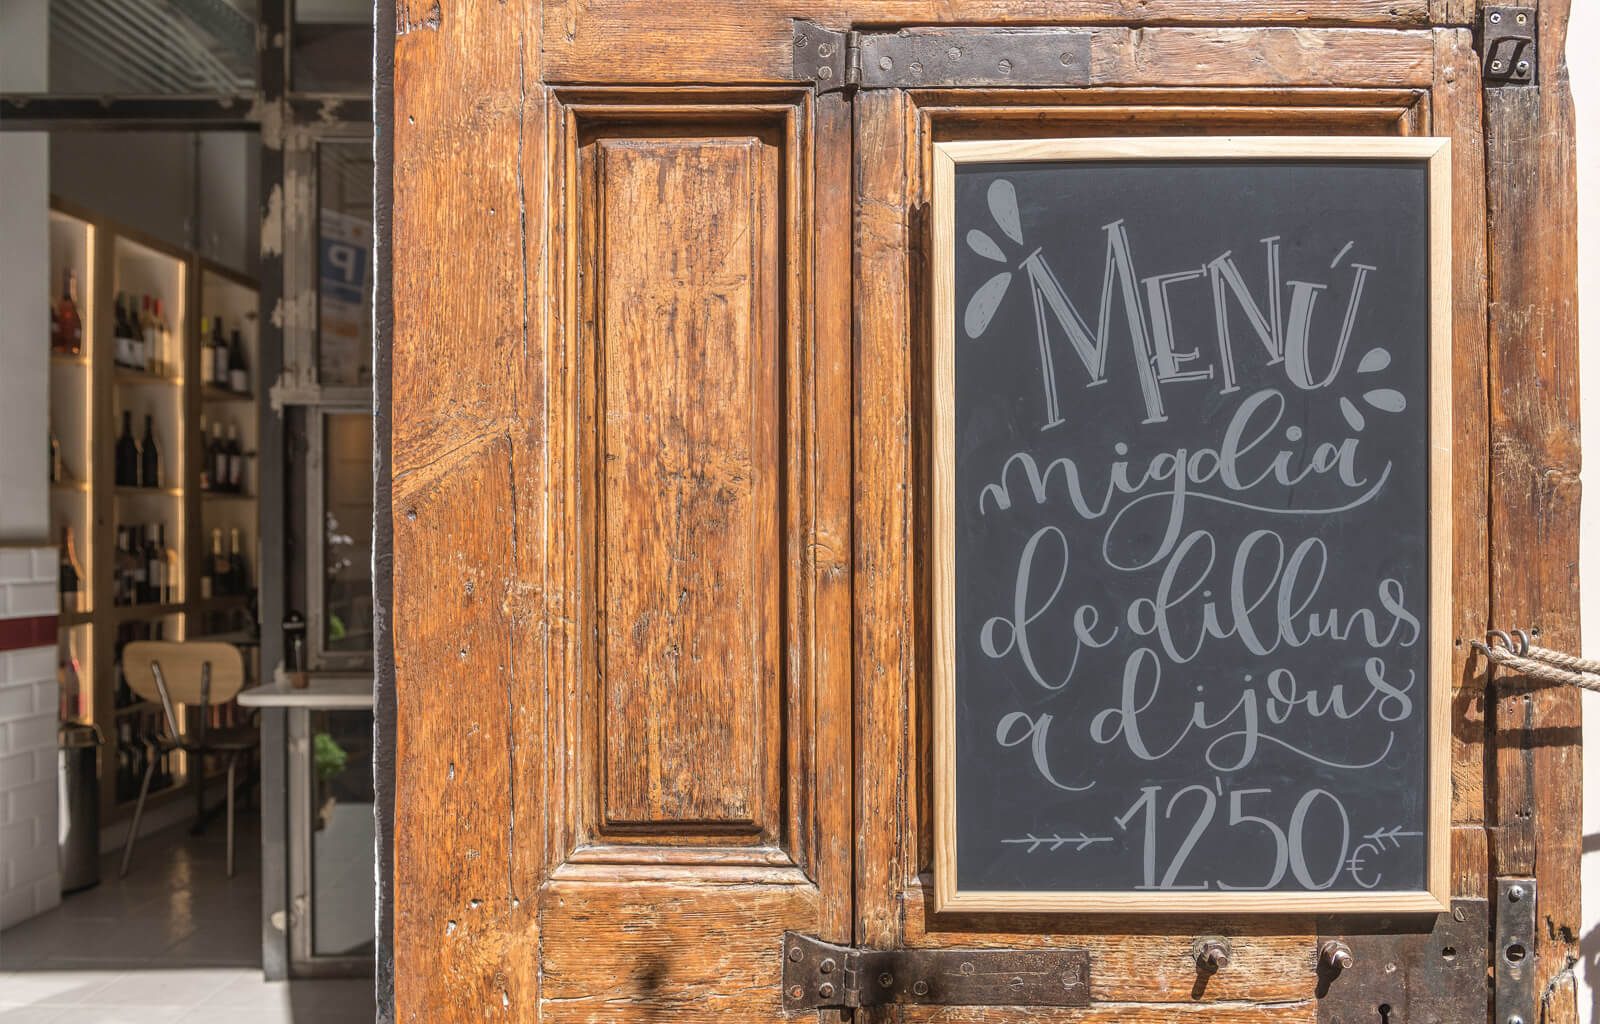 P
MENÚ
migdia
de dilluns
a dijous
12'50€